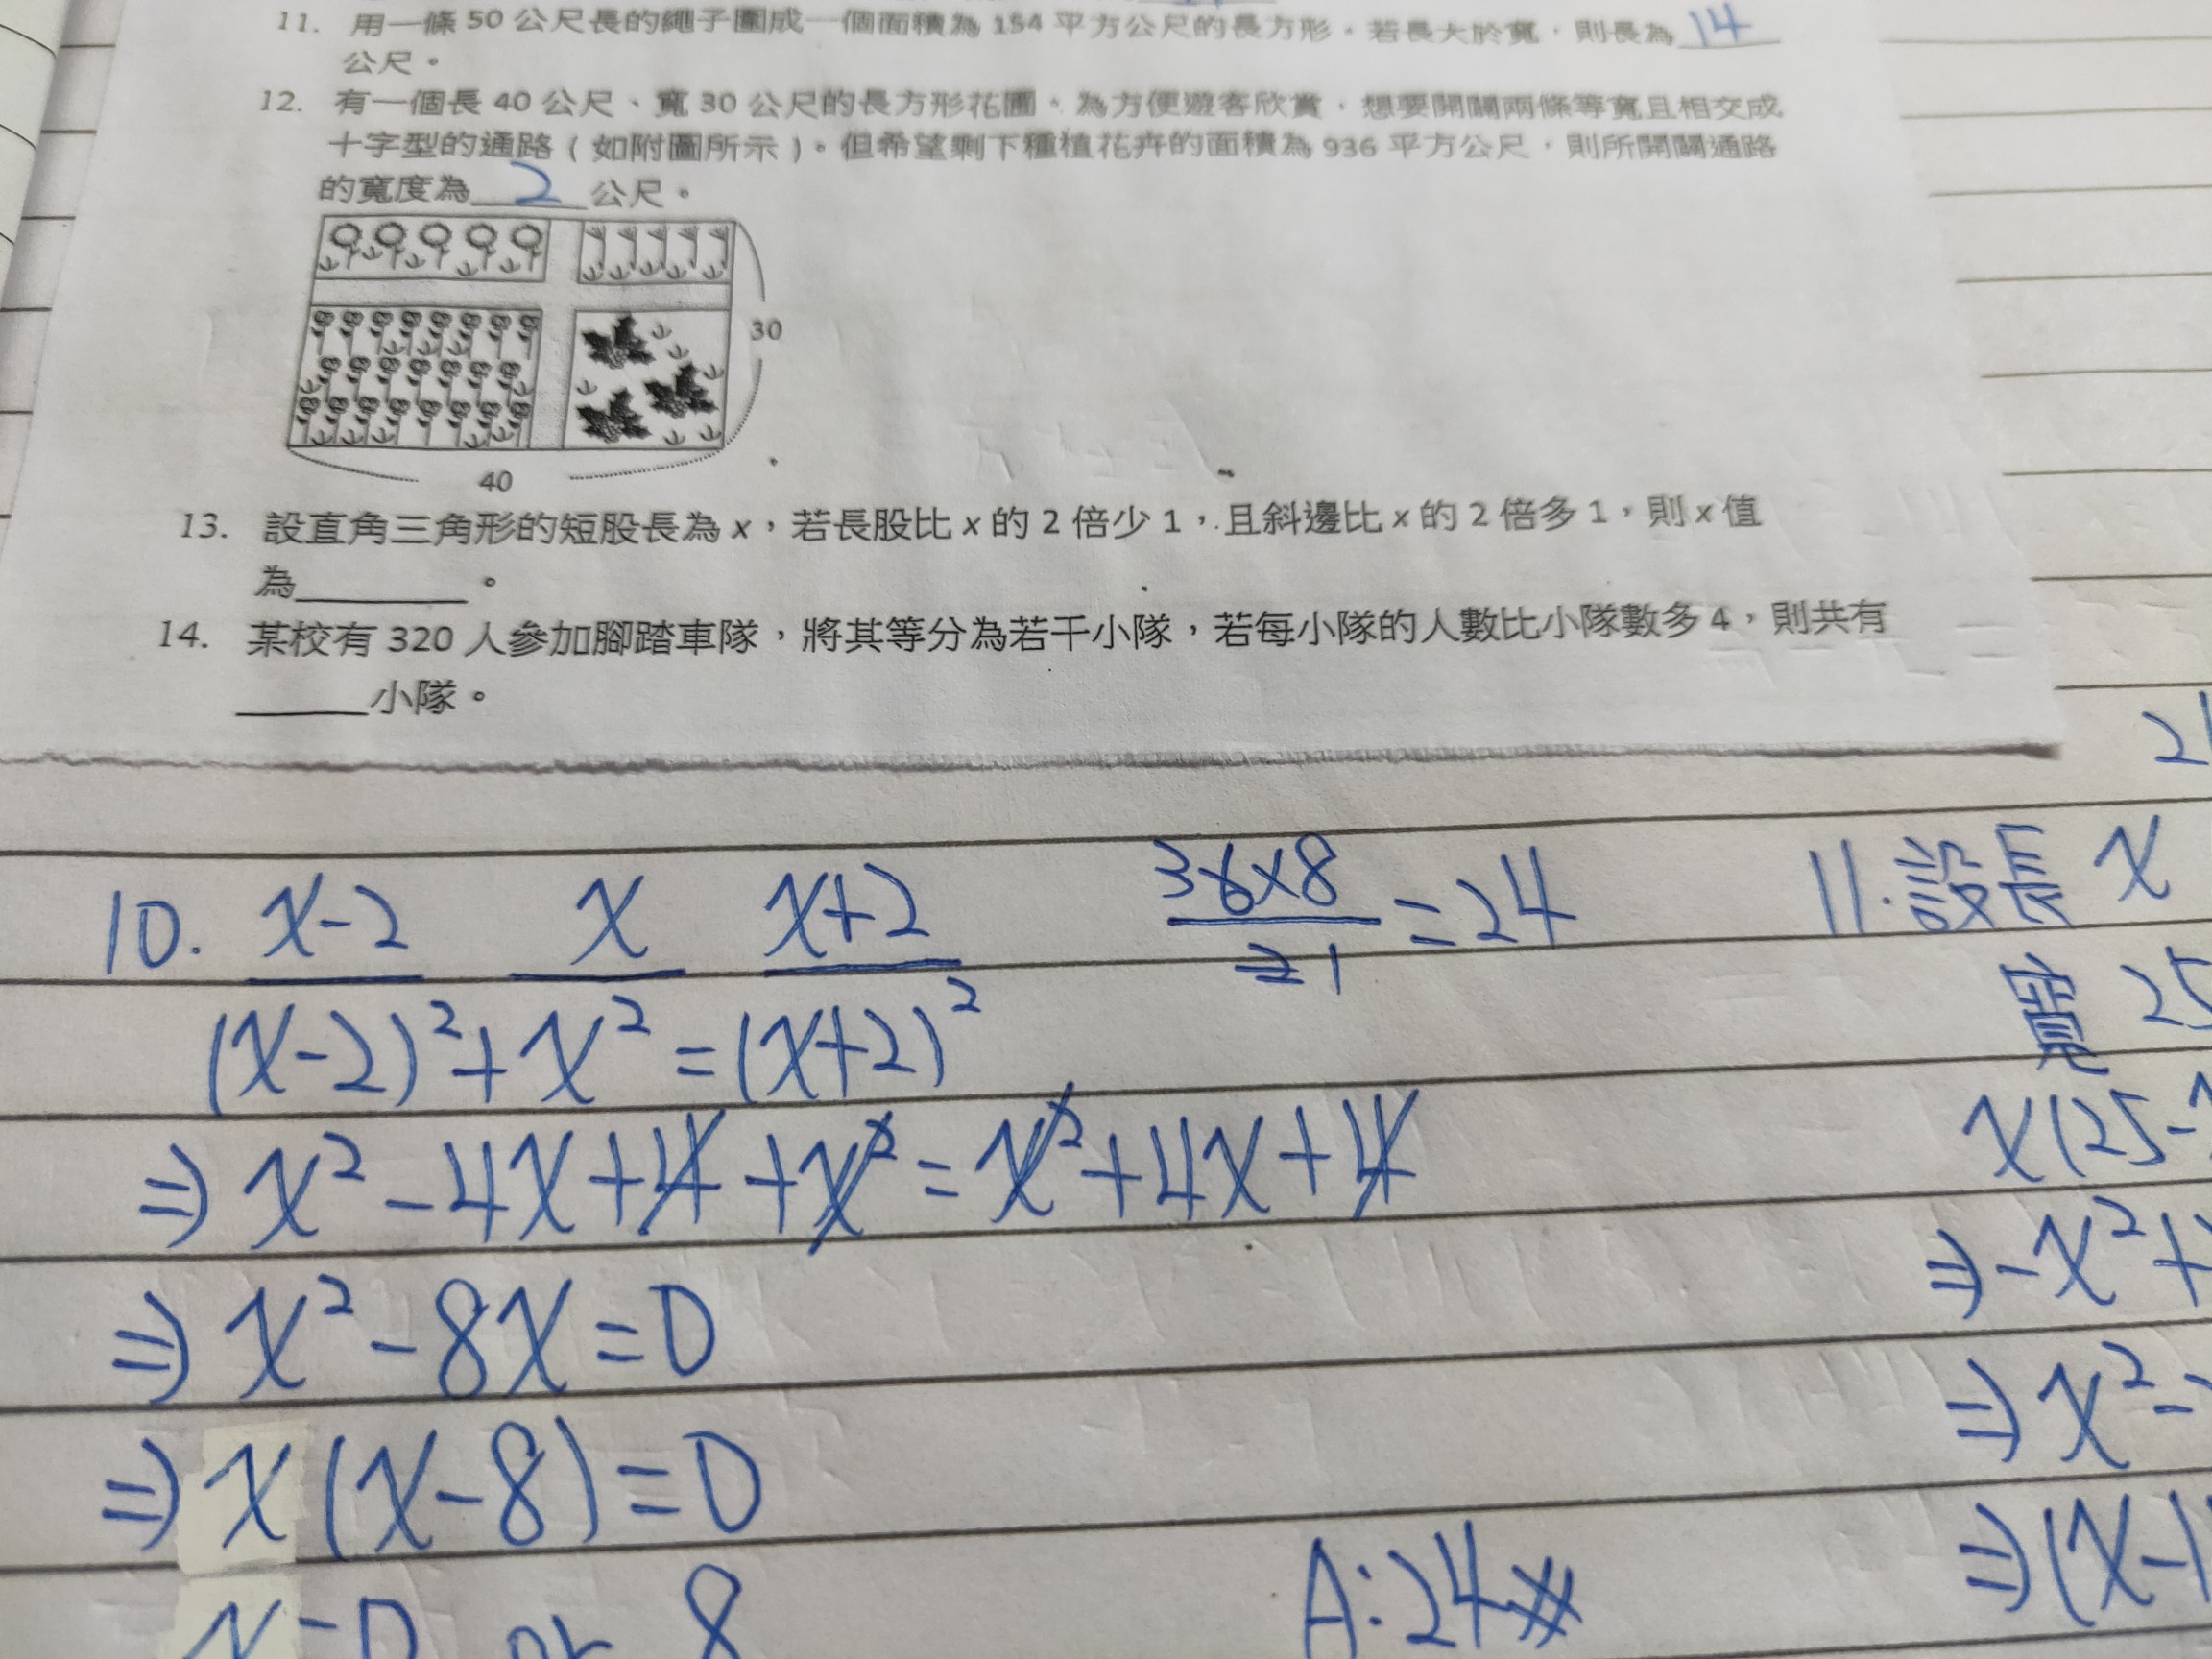 11. 用一條 50 公尺長的繩子圍成一個面積為 154 平方公尺的長方形。若長大於寬，則長為 14
公尺。
12. 有一個長 40 公尺、寬 30 公尺的長方形花圃。為方便遊客欣賞，想要開闢兩條等寬且相交成
十字型的通路（如附圖所示）。但希望剩下種植花卉的面積為 936 平方公尺，則所開闢通路
的寬度為 2 公尺。
30
40
13. 設直角三角形的短股長為 x，若長股比 x 的 2 倍少 1，且斜邊比 x 的 2 倍多 1，則 x 值
為________。
14. 某校有 320 人參加腳踏車隊，將其等分為若干小隊，若每小隊的人數比小隊數多 4，則共有
______小隊。
10. x-2 x x+2
(x-2)²+x²=(x+2)²
⇒ x²-4x+4+x²=x²+4x+4
⇒ x²-8x=0
⇒ x(x-8)=0
x=0 or 8
=24
A:24
11.設長 x
寬 25
x(25-
⇒ -x²+
⇒ x²-
⇒ (x-1